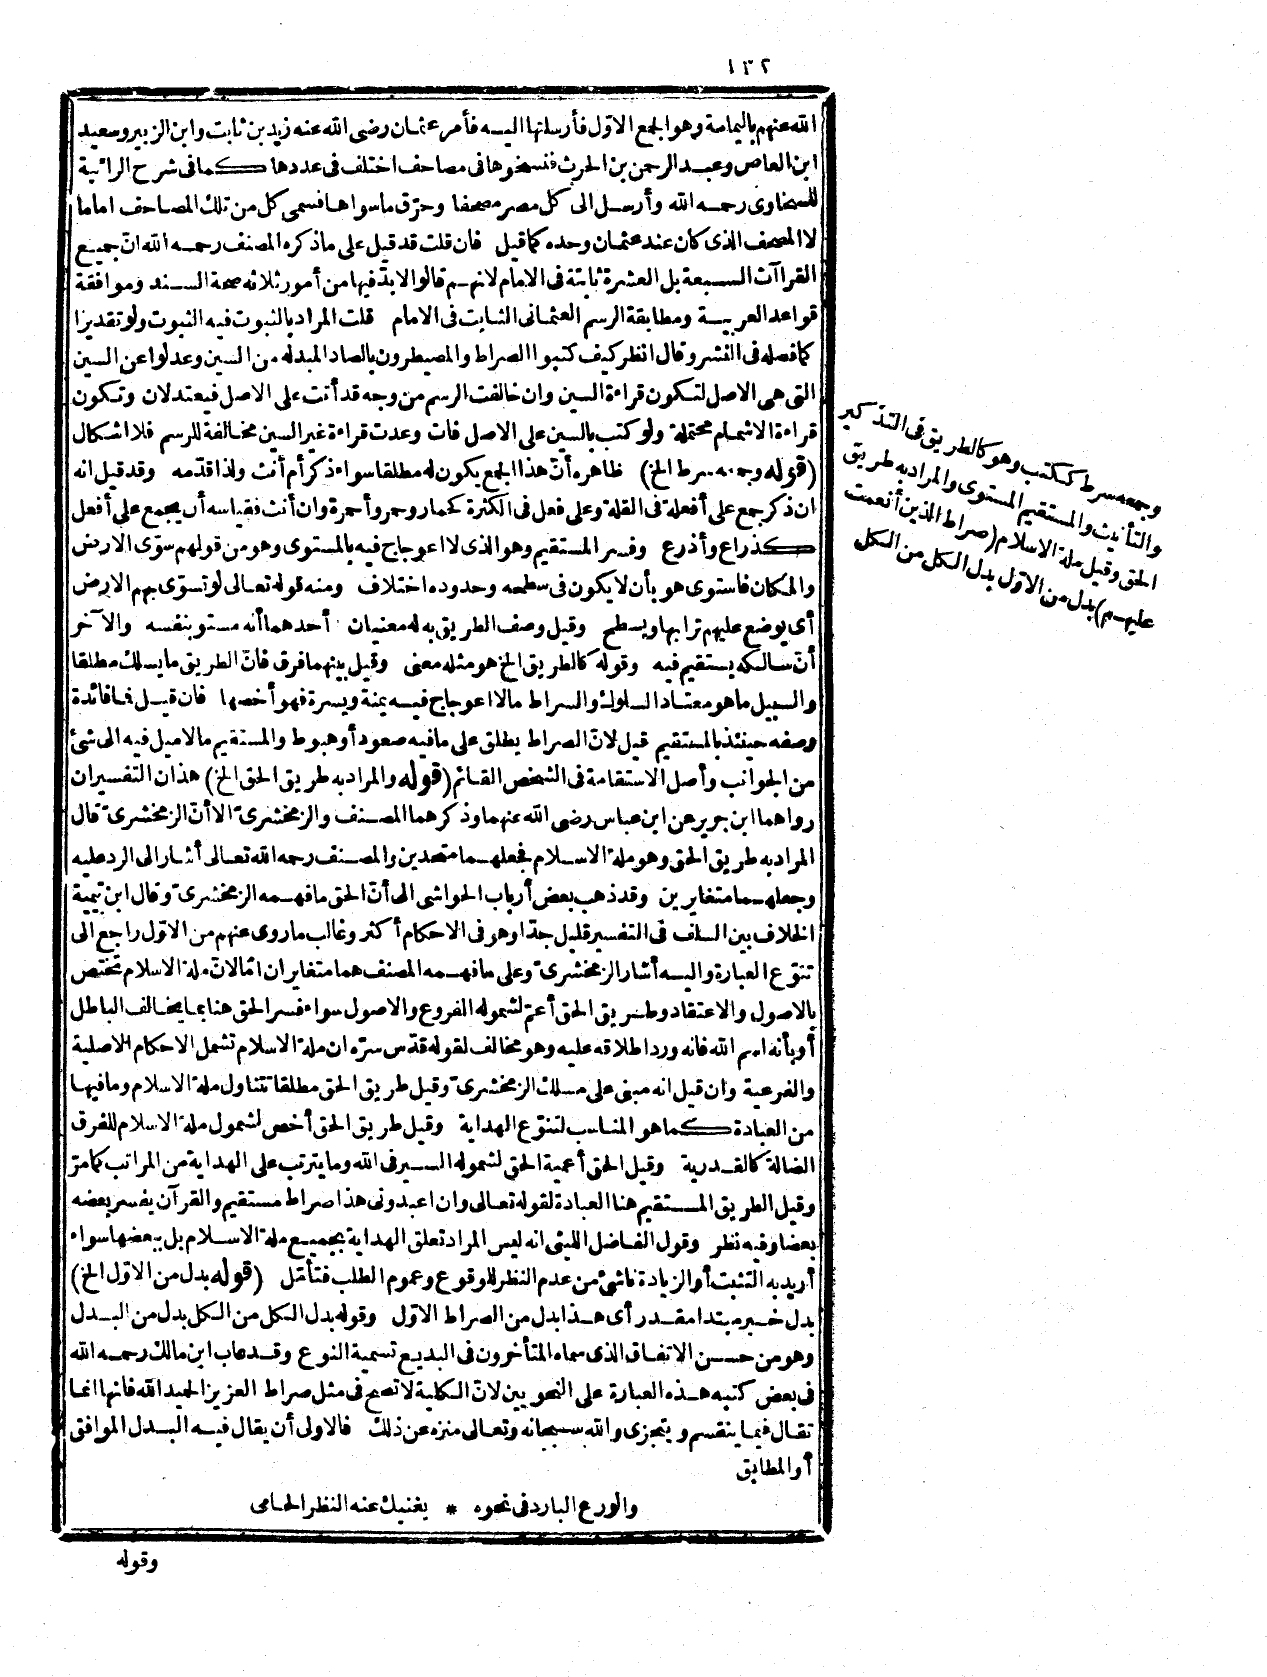 ١٣٢
الله عنهم باليمامة وهو الجمع الاوّل فأرسلتها اليه فأمر عثمان رضى الله عنه زيد بن ثابت وابن الزبير وسعيد
ابن العاص وعبد الرحمن بن الحرث فنسخوها فى مصاحف اختلف فى عددها كما فى شرح الرائية
للسخاوى رحمه الله وأرسل الى كل مصر مصحفا وحرّق ما سواها فسمى كل من تلك المصاحف اماما
لا المصحف الذى كان عند عثمان وحده كما قيل فان قلت قد قيل على ما ذكره المصنف رحمه الله انّ جميع
القراآت السبعة بل العشرة ثابتة فى الامام لانهم قالوا لابدّ فيها من أمور ثلاثة صحة السند وموافقة
قواعد العربية ومطابقة الرسم العثمانى الثابت فى الامام قلت المراد بالثبوت فيه الثبوت ولو تقديرا
كما فصله فى النشر وقال انظر كيف كتبوا الصراط والمصيطرون بالصاد المبدلة من السين وعدلوا عن السين
التى هى الاصل لتكون قراءة السين وان خالفت الرسم من وجه قد أتت على الاصل فيعتدلان وتكون
قراءة الاشمام محتملة ولو كتب بالسين على الاصل فات وعدت قراءة غير السين مخالفة للرسم فلا اشكال
(قوله وجمعه سرط الخ) ظاهره أنّ هذا الجمع يكون له مطلقا سواء ذكر أم أنث ولذا قدّمه وقد قيل انه
ان ذكر جمع على أفعلة فى القلة وعلى فعل فى الكثرة كحمار وحمر وأحمرة وان أنث فقياسه أن يجمع على أفعل
كذراع وأذرع وفسر المستقيم وهو الذى لا اعوجاج فيه بالمستوى وهو من قولهم سوّى الارض
والمكان فاستوى هو بأن لا يكون فى سطحه وحدوده اختلاف ومنه قوله تعالى لو تسوّى بهم الارض
أى يوضع عليهم ترابها ويسطح وقيل وصف الطريق به له معنيان أحدهما أنه مستو بنفسه والآخر
أنّ سالكه يستقيم فيه وقوله كالطريق الخ هو مثله معنى وقيل بينهما فرق فانّ الطريق ما يسلك مطلقا
والسبيل ما هو معتاد السلوك والسراط ما لا اعوجاج فيه يمنة ويسرة فهو أخصها فان قيل فما فائدة
وصفه حينئذ بالمستقيم قيل لانّ الصراط يطلق على ما فيه صعود أو هبوط والمستقيم ما لا ميل فيه الى شئ
من الجوانب وأصل الاستقامة فى الشخص القائم (قوله والمراد به طريق الحق الخ) هذان التفسيران
رواهما ابن جرير عن ابن عباس رضى الله عنهما وذكرهما المصنف والزمخشرىّ الا أنّ الزمخشرىّ قال
المراد به طريق الحق وهو ملة الاسلام فجعلهما متحدين والمصنف رحمه الله تعالى أشار الى الرد عليه
وجعلهما متغايرين وقد ذهب بعض أرباب الحواشى الى أنّ الحق ما فهمه الزمخشرىّ وقال ابن تيمية
الخلاف بين السلف فى التفسير قليل جدّا وهو فى الاحكام أكثر وغالب ما روى عنهم من الاوّل راجع الى
تنوّع العبارة واليه أشار الزمخشرىّ وعلى ما فهمه المصنف هما متغايران امّا لانّ ملة الاسلام تختص
بالاصول والاعتقاد وطريق الحق أعمّ لشموله الفروع والاصول سواء فسر الحق هنا بما يخالف الباطل
أو بأنه اسم الله فانه ورد اطلاقه عليه وهو مخالف لقوله قدّس سرّه ان ملة الاسلام تشمل الاحكام الاصلية
والفرعية وان قيل انه مبنى على مسلك الزمخشرىّ وقيل طريق الحق مطلقا تتناول ملة الاسلام وما فيها
من العبادة كما هو المناسب لتنوّع الهداية وقيل طريق الحق أخص لشمول ملة الاسلام للفرق
الضالة كالقدرية وقيل الحق أعمية الحق لشموله السير فى الله وما يترتب على الهداية من المراتب كما مرّ
وقيل الطريق المستقيم هنا العبادة لقوله تعالى وان اعبدونى هذا صراط مستقيم والقرآن يفسر بعضه
بعضا وفيه نظر وقول الفاضل الليثى انه ليس المراد تعلق الهداية بجميع ملة الاسلام بل ببعضها سواء
أريد به التثبت أو الزيادة ناشئ من عدم النظر للوقوع وعموم الطلب فتأمّل (قوله بدل من الاوّل الخ)
بدل خبر مبتدا مقدر أى هذا بدل من الصراط الاوّل وقوله بدل الكل من الكل بدل من البدل
وهو من حسن الاتفاق الذى سماه المتأخرون فى البديع تسمية النوع وقد عاب ابن مالك رحمه الله
فى بعض كتبه هذه العبارة على النحويين لانّ الكلية لا تصح فى مثل صراط العزيز الحميد الله فانها انما
تقال فيما ينقسم ويتجزى والله سبحانه وتعالى منزه عن ذلك فالاولى أن يقال فيه البدل الموافق
أو المطابق
والورع البارد فى نحوه * يغنيك عنه النظر الحامى
وقوله
وجمعه سرط ككتب وهو كالطريق فى التذكير
والتأنيث والمستقيم المستوى والمراد به طريق
الحق وقيل ملة الاسلام (صراط الذين أنعمت
عليهم) بدل من الاوّل بدل الكل من الكل